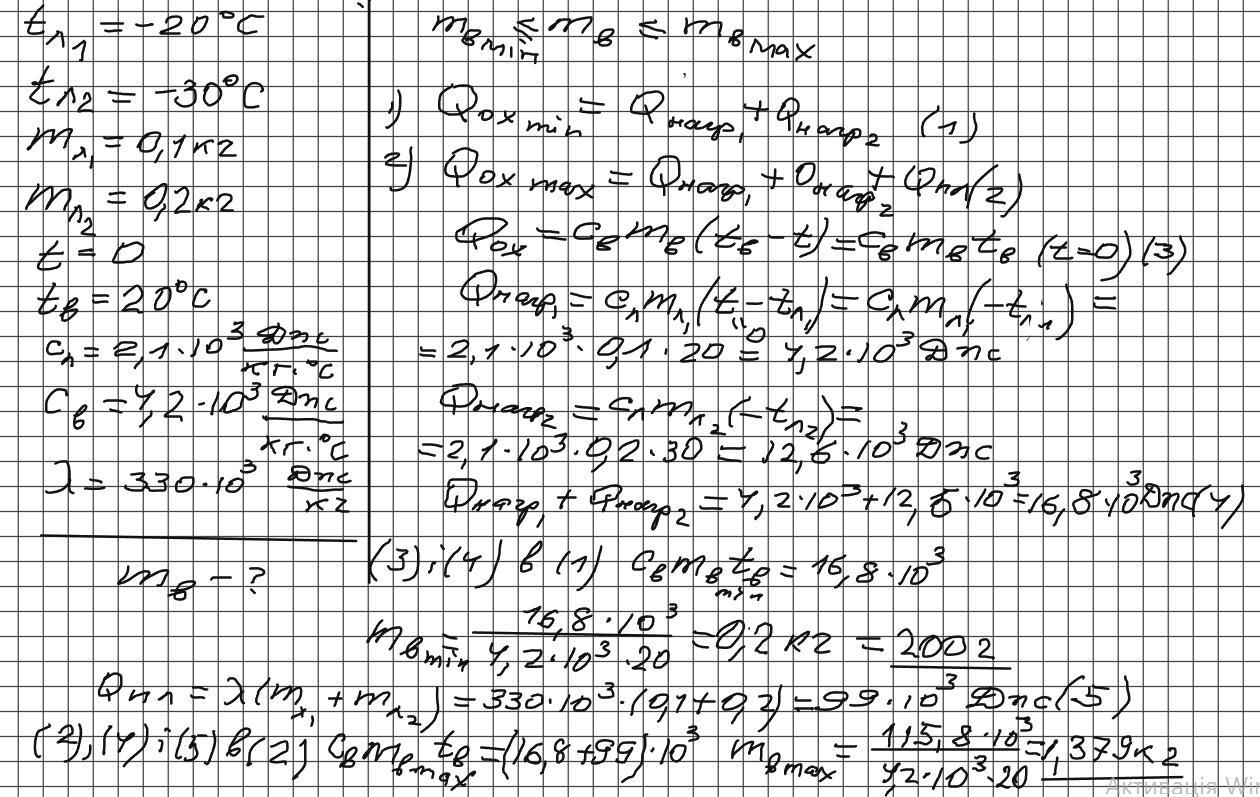 tл₁ = -20°C
tл₂ = -30°C
mл₁ = 0,1кг
mл₂ = 0,2кг
t = 0
tв = 20°C
cл = 2,1·10³ Дж/кг·°C
Cв = 4,2·10³ Дж/кг·°C
λ = 330·10³ Дж/кг
mв - ?
mв min ≤ mв ≤ mв max
1) Qох min = Qнагр₁ + Qнагр₂ (1)
2) Qох max = Qнагр₁ + Qнагр₂ + Qпл (2)
Qох = cв mв (tв - t) = cв mв tв (t=0) (3)
Qнагр₁ = cл mл₁ (t - tл₁) = cл mл₁ (-tл₁) =
" 0
= 2,1·10³·0,1·20 = 4,2·10³ Дж
Qнагр₂ = cл mл₂ (-tл₂) =
= 2,1·10³·0,2·30 = 12,6·10³ Дж
Qнагр₁ + Qнагр₂ = 4,2·10³ + 12,6·10³ = 16,8·10³ Дж (4)
(3) і (4) в (1) cв mв min tв = 16,8·10³
mв min = 16,8·10³ / 4,2·10³·20 = 0,2 кг = 200г
Qпл = λ(mл₁ + mл₂) = 330·10³·(0,1+0,2) = 99·10³ Дж (5)
(2), (4) і (5) в (2) cв mв max tв = (16,8+99)·10³ mв max = 115,8·10³ / 4,2·10³·20 = 1,379кг
Активація Win